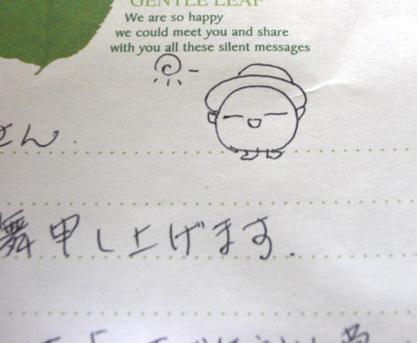 GENTLE LEAF
We are so happy
we could meet you and share
with you all these silent messages
さん.
舞申し上げます.